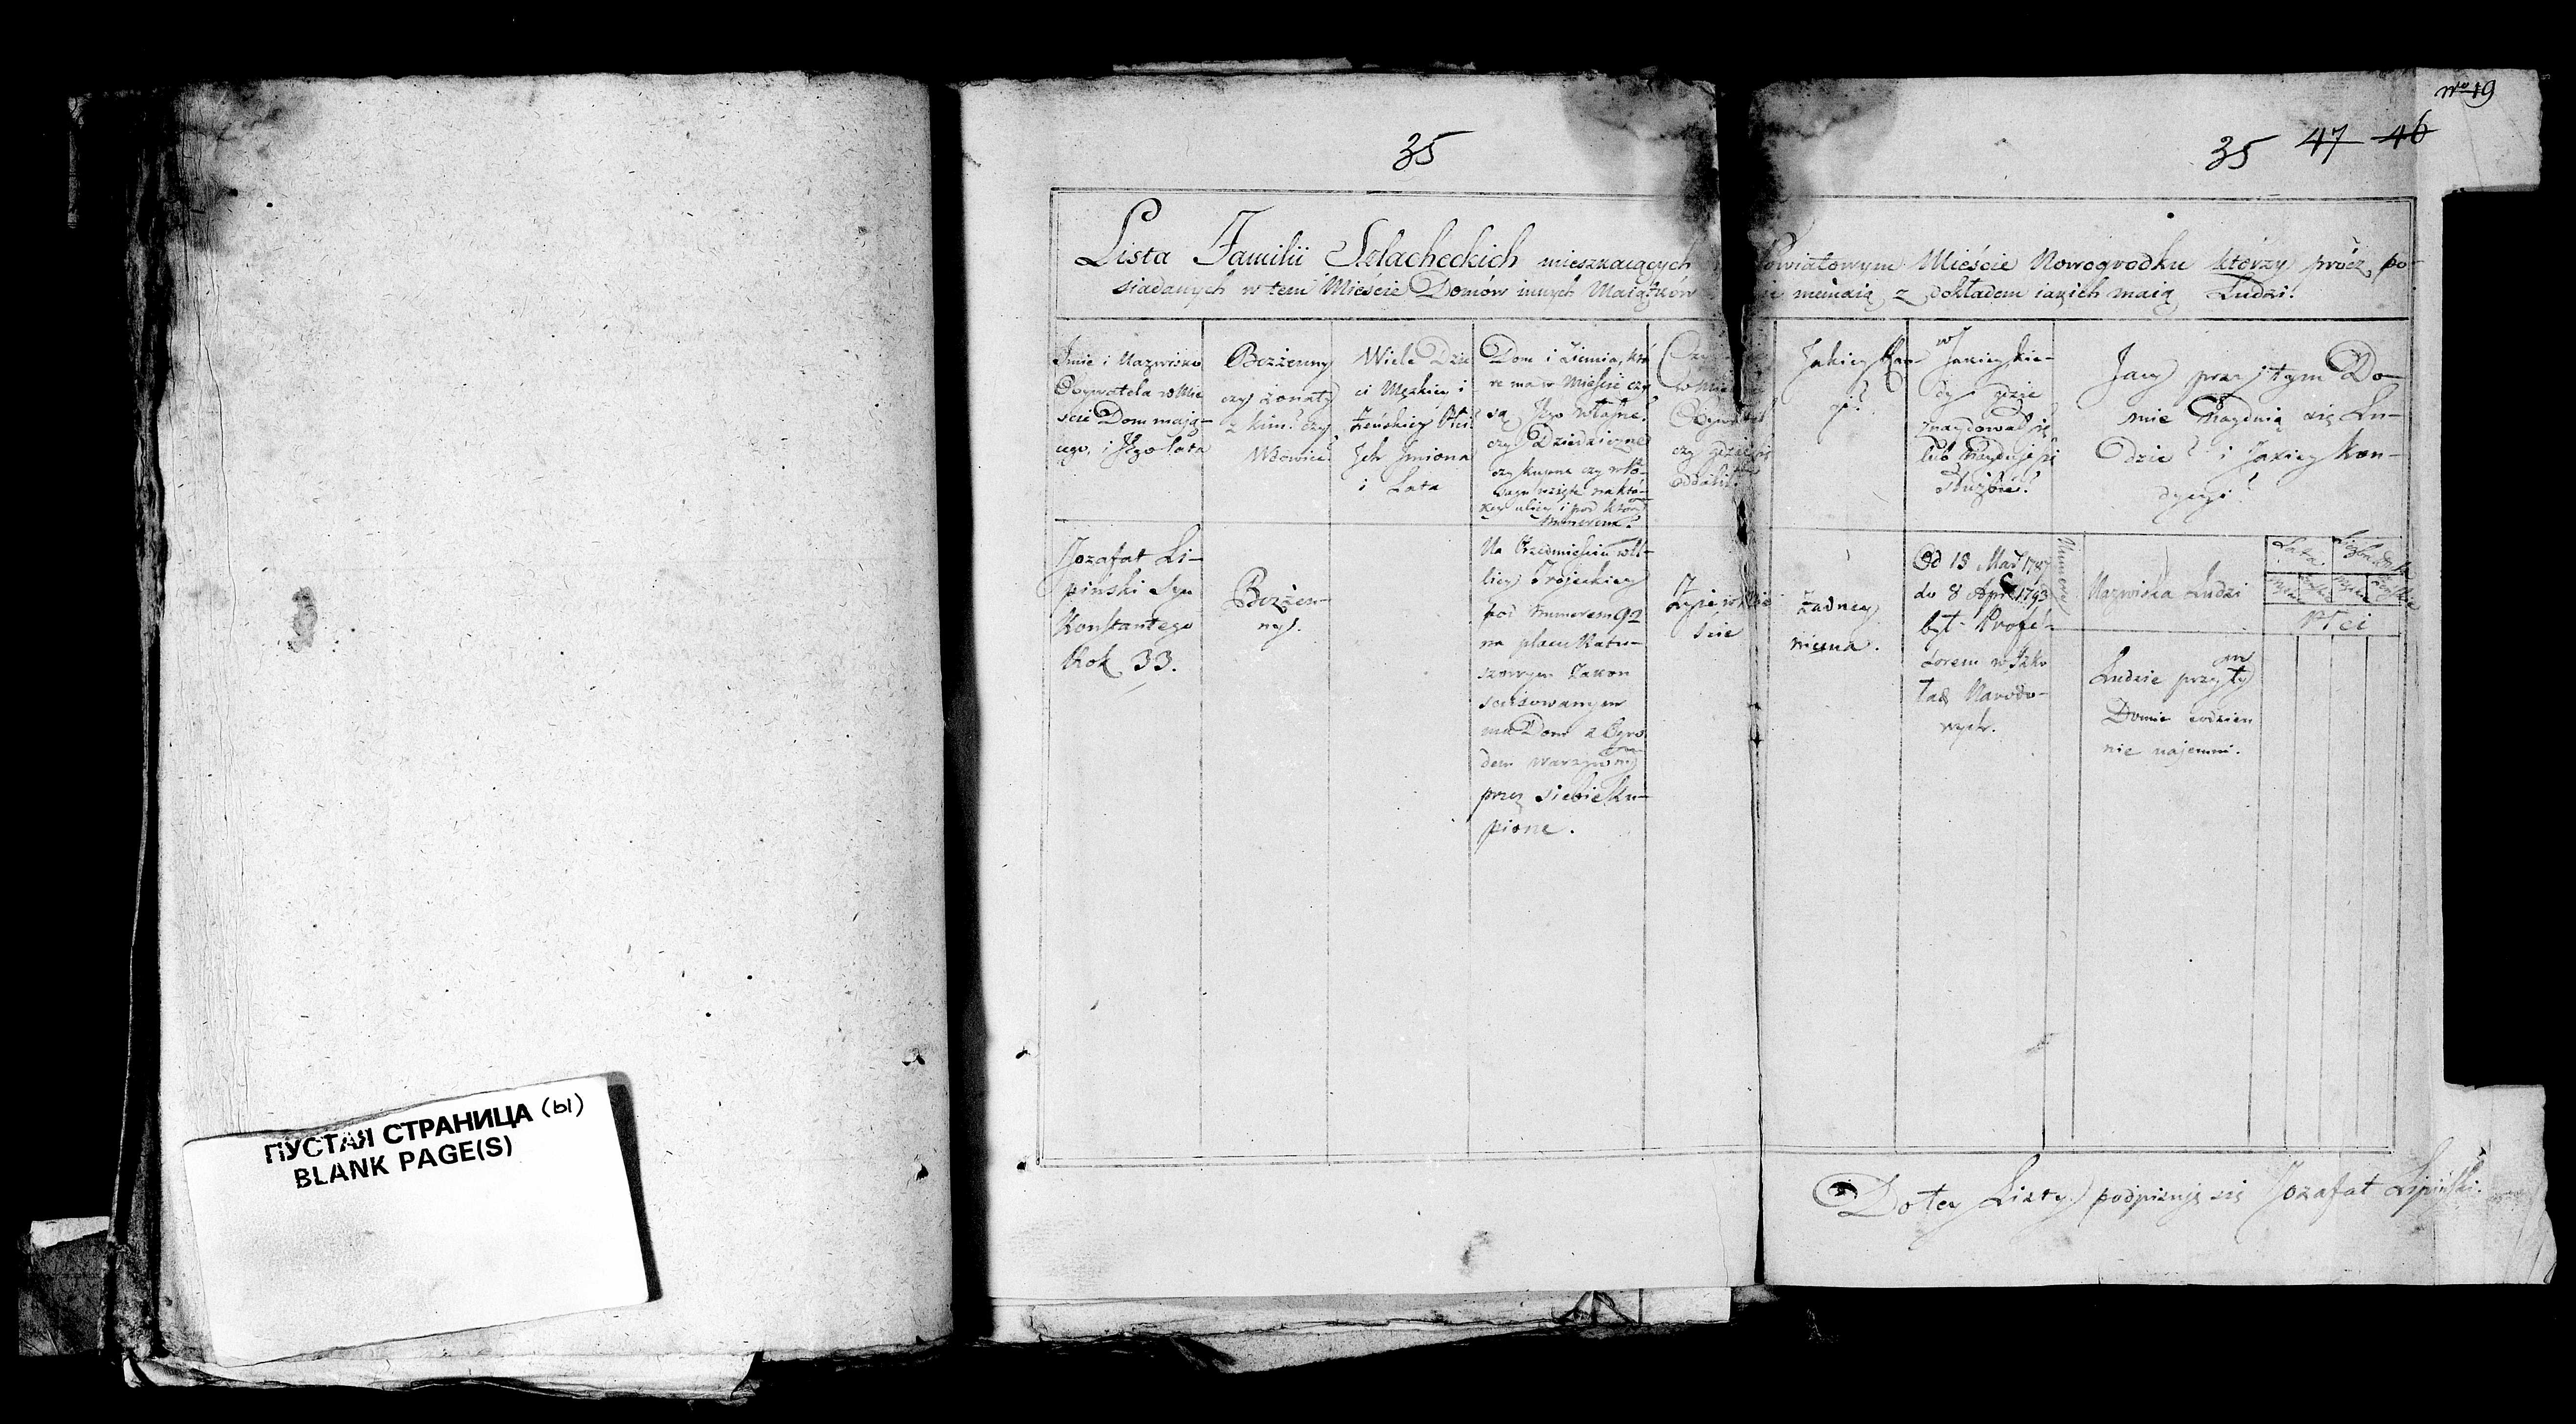 ПУСТАЯ СТРАНИЦА (ы)
BLANK PAGE(S)
35
35 47 46
No 19
Lista Familii Szlacheckich mieszkaiących Powiatowym Mieście Nowogrodku którzy prócz po-
siadanych w tem Mieście Domów innych Maiątków nie maią, z dokładem iakich maią Ludzi.
Jmie i Nazwisko
Obywatela w Mie
scie Dom mają-
cego, i Jego lata
Bezżenny
czy żonaty
z kim? czy
Wdowiec?
Wiele Dzie
ci Męzkiey i
Żeńskiey Płci
Jch Jmiona
i Lata
Dom i Ziemia, któ
re ma w Mieście czy
są Jego własne?
czy Dziedziczne
czy kupne czy
wzięte na któ-
rey ulicy i pod którym
Numerem?
Czy
w Mie
Obywatel
czy gdzie się
oddalił?
Jakiey Ran
gi?
w Jakiey kie-
dy i gdzie
znaydował się
lub znayduje się
służbie?
Jacy przy tym Do-
mie znaydują się Lu-
dzie? i Jakiey Kon-
dycyi?
Jozafat Li-
pinski Syn
Konstantego
Rok 33.
Bezżen-
ny.
Na Przedmieściu w Ul-
licy Trojeckiey
pod Numerem 92
na placu Ratu-
szowym
ma Dom z Ogro
dem warzywnym
przez siebie ku-
pione.
Żyie w Mie
ście
Żadney
niema.
Od 15 1787
do 8 Apr 1793
był Profe-
sorem w Szko
łach Narodo-
wych.
Numera
Nazwiska Ludzi
Lata
Płci
Ludzie przy tym
Domie codzien
nie najemni.
Do tey Listy podpisuję się Jozafat Lipiński.